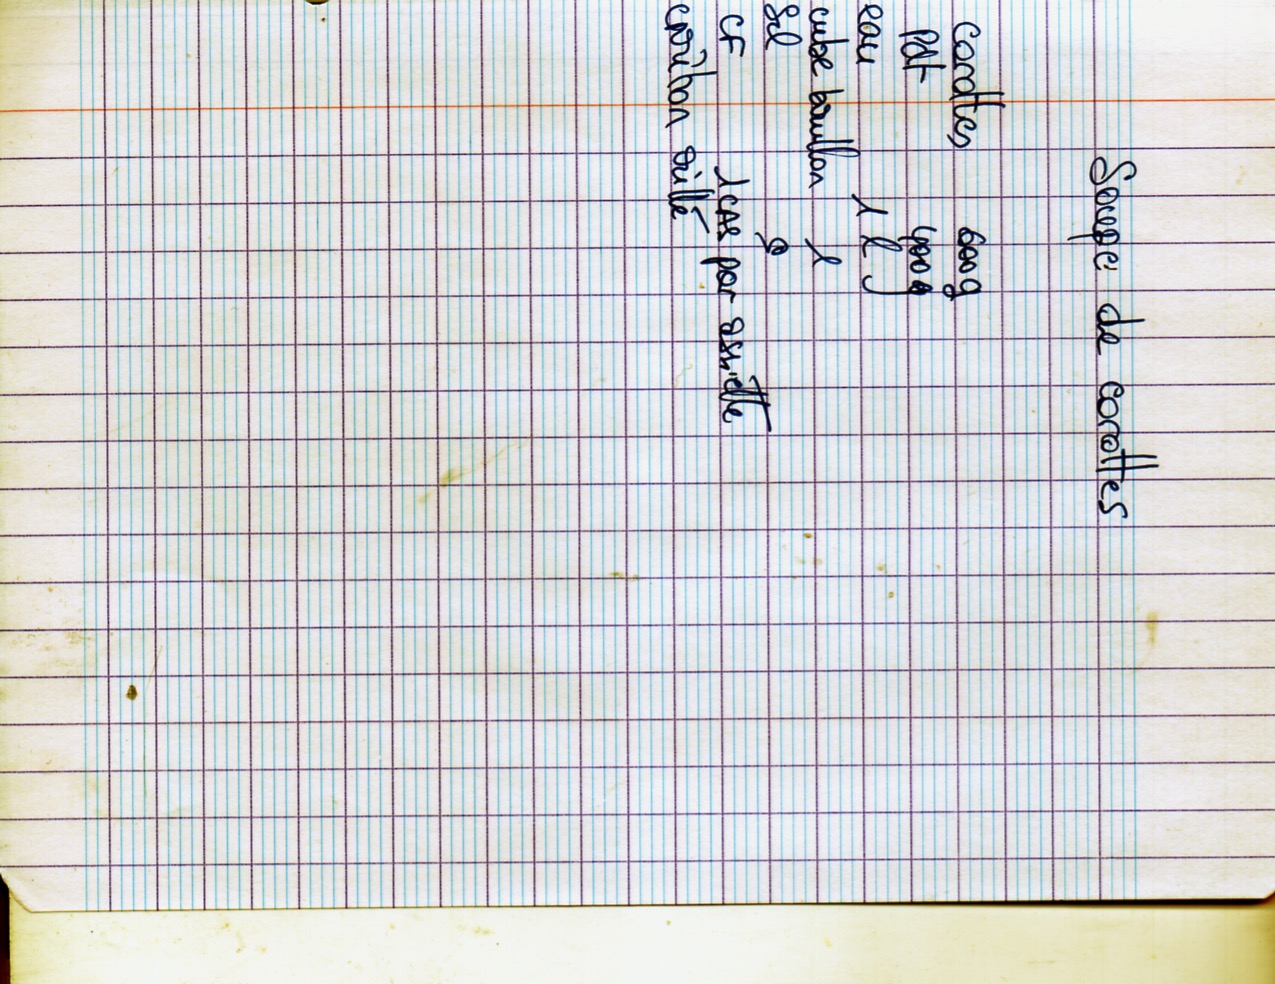 Soupe de carottes
carottes 600 g
pdt 400 g
eau 1 l
cube bouillon 1
sel
CF 1 CAS par assiette